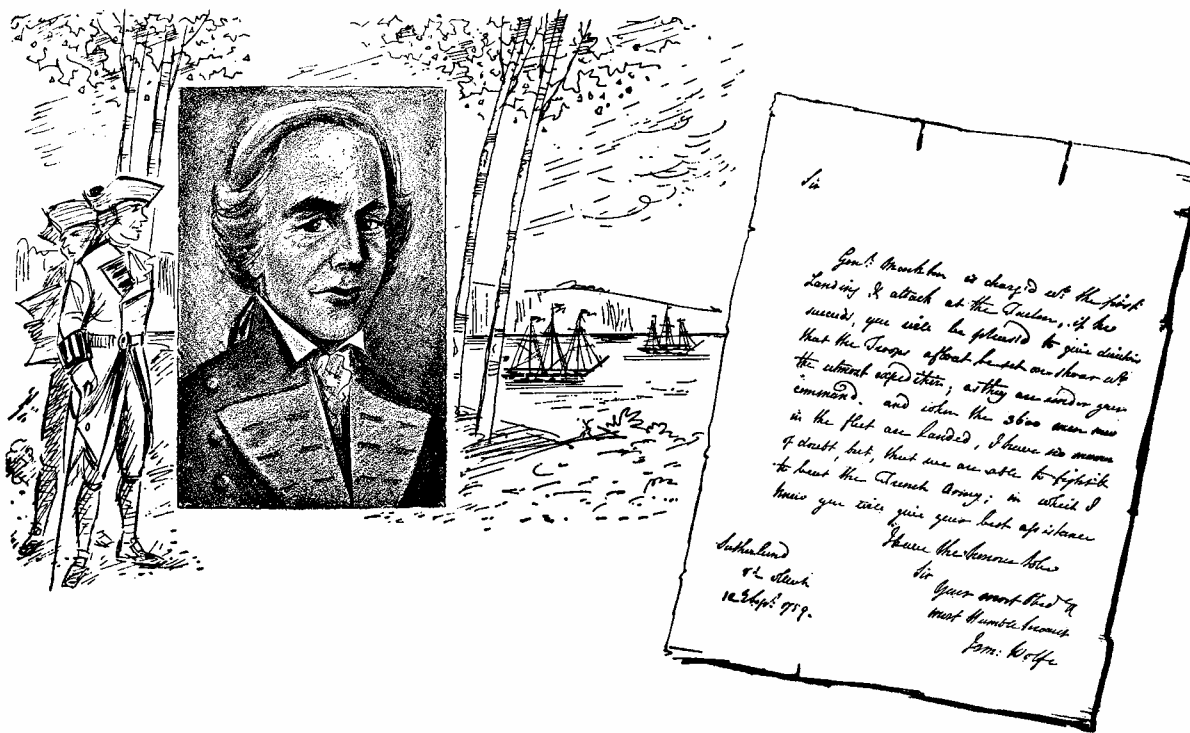 Sir
Genl. Monckton is charg'd wt. the first
Landing & attack at the Foulon, if he
succeeds, you will be pleased to give direction
that the Troops afloat be set on shore wt.
the utmost expedition, as they are under your
command. and when the 3600 men now
in the fleet are landed, I have no manner
of doubt, but, that we are able to fight &
to beat the French Army; in which I
know you will give your best assistance
I have the honour to be
Sir
your most Obed. &
most Humble Servant
Jam: Wolfe
Sutherland
8 o'Clock
12 Sepr. 1759.